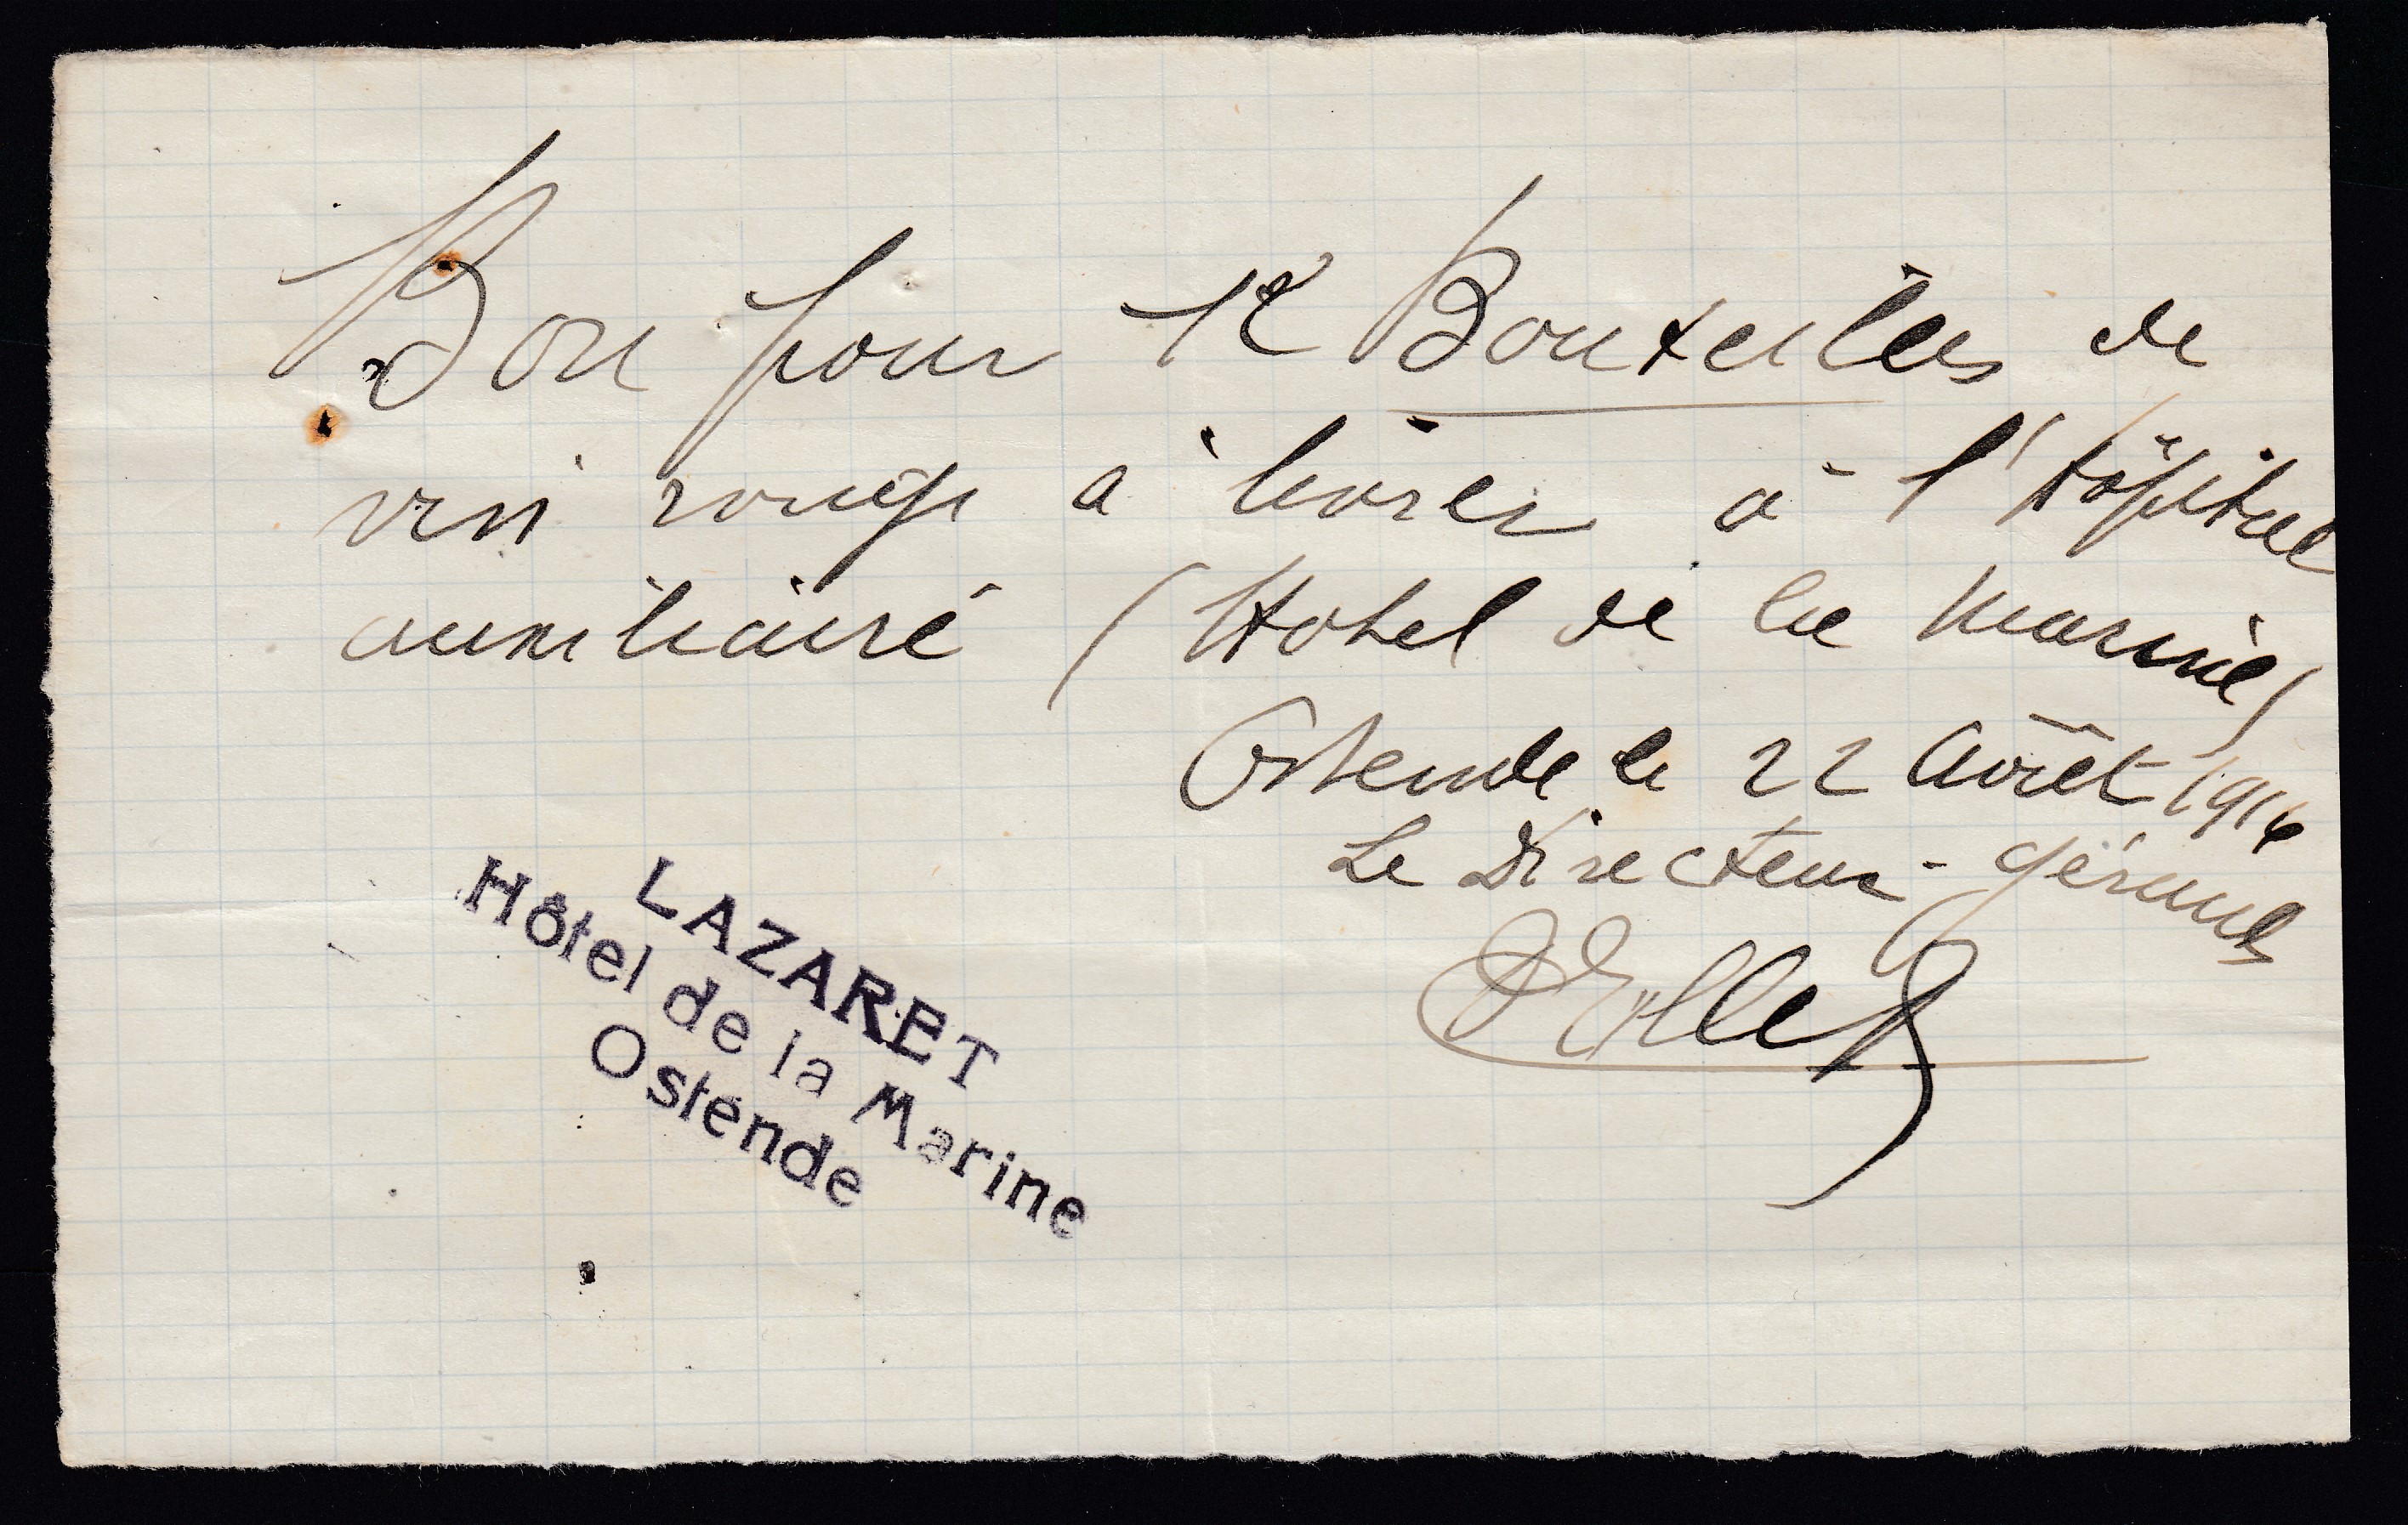 Bon pour 12 Bouteilles de
vin rouge à livrer à l'Hôpital
auxiliaire (Hotel de la Marine)
Ostende le 22 Août 1914
Le Directeur-gérant
LAZARET
Hôtel de la Marine
Ostende